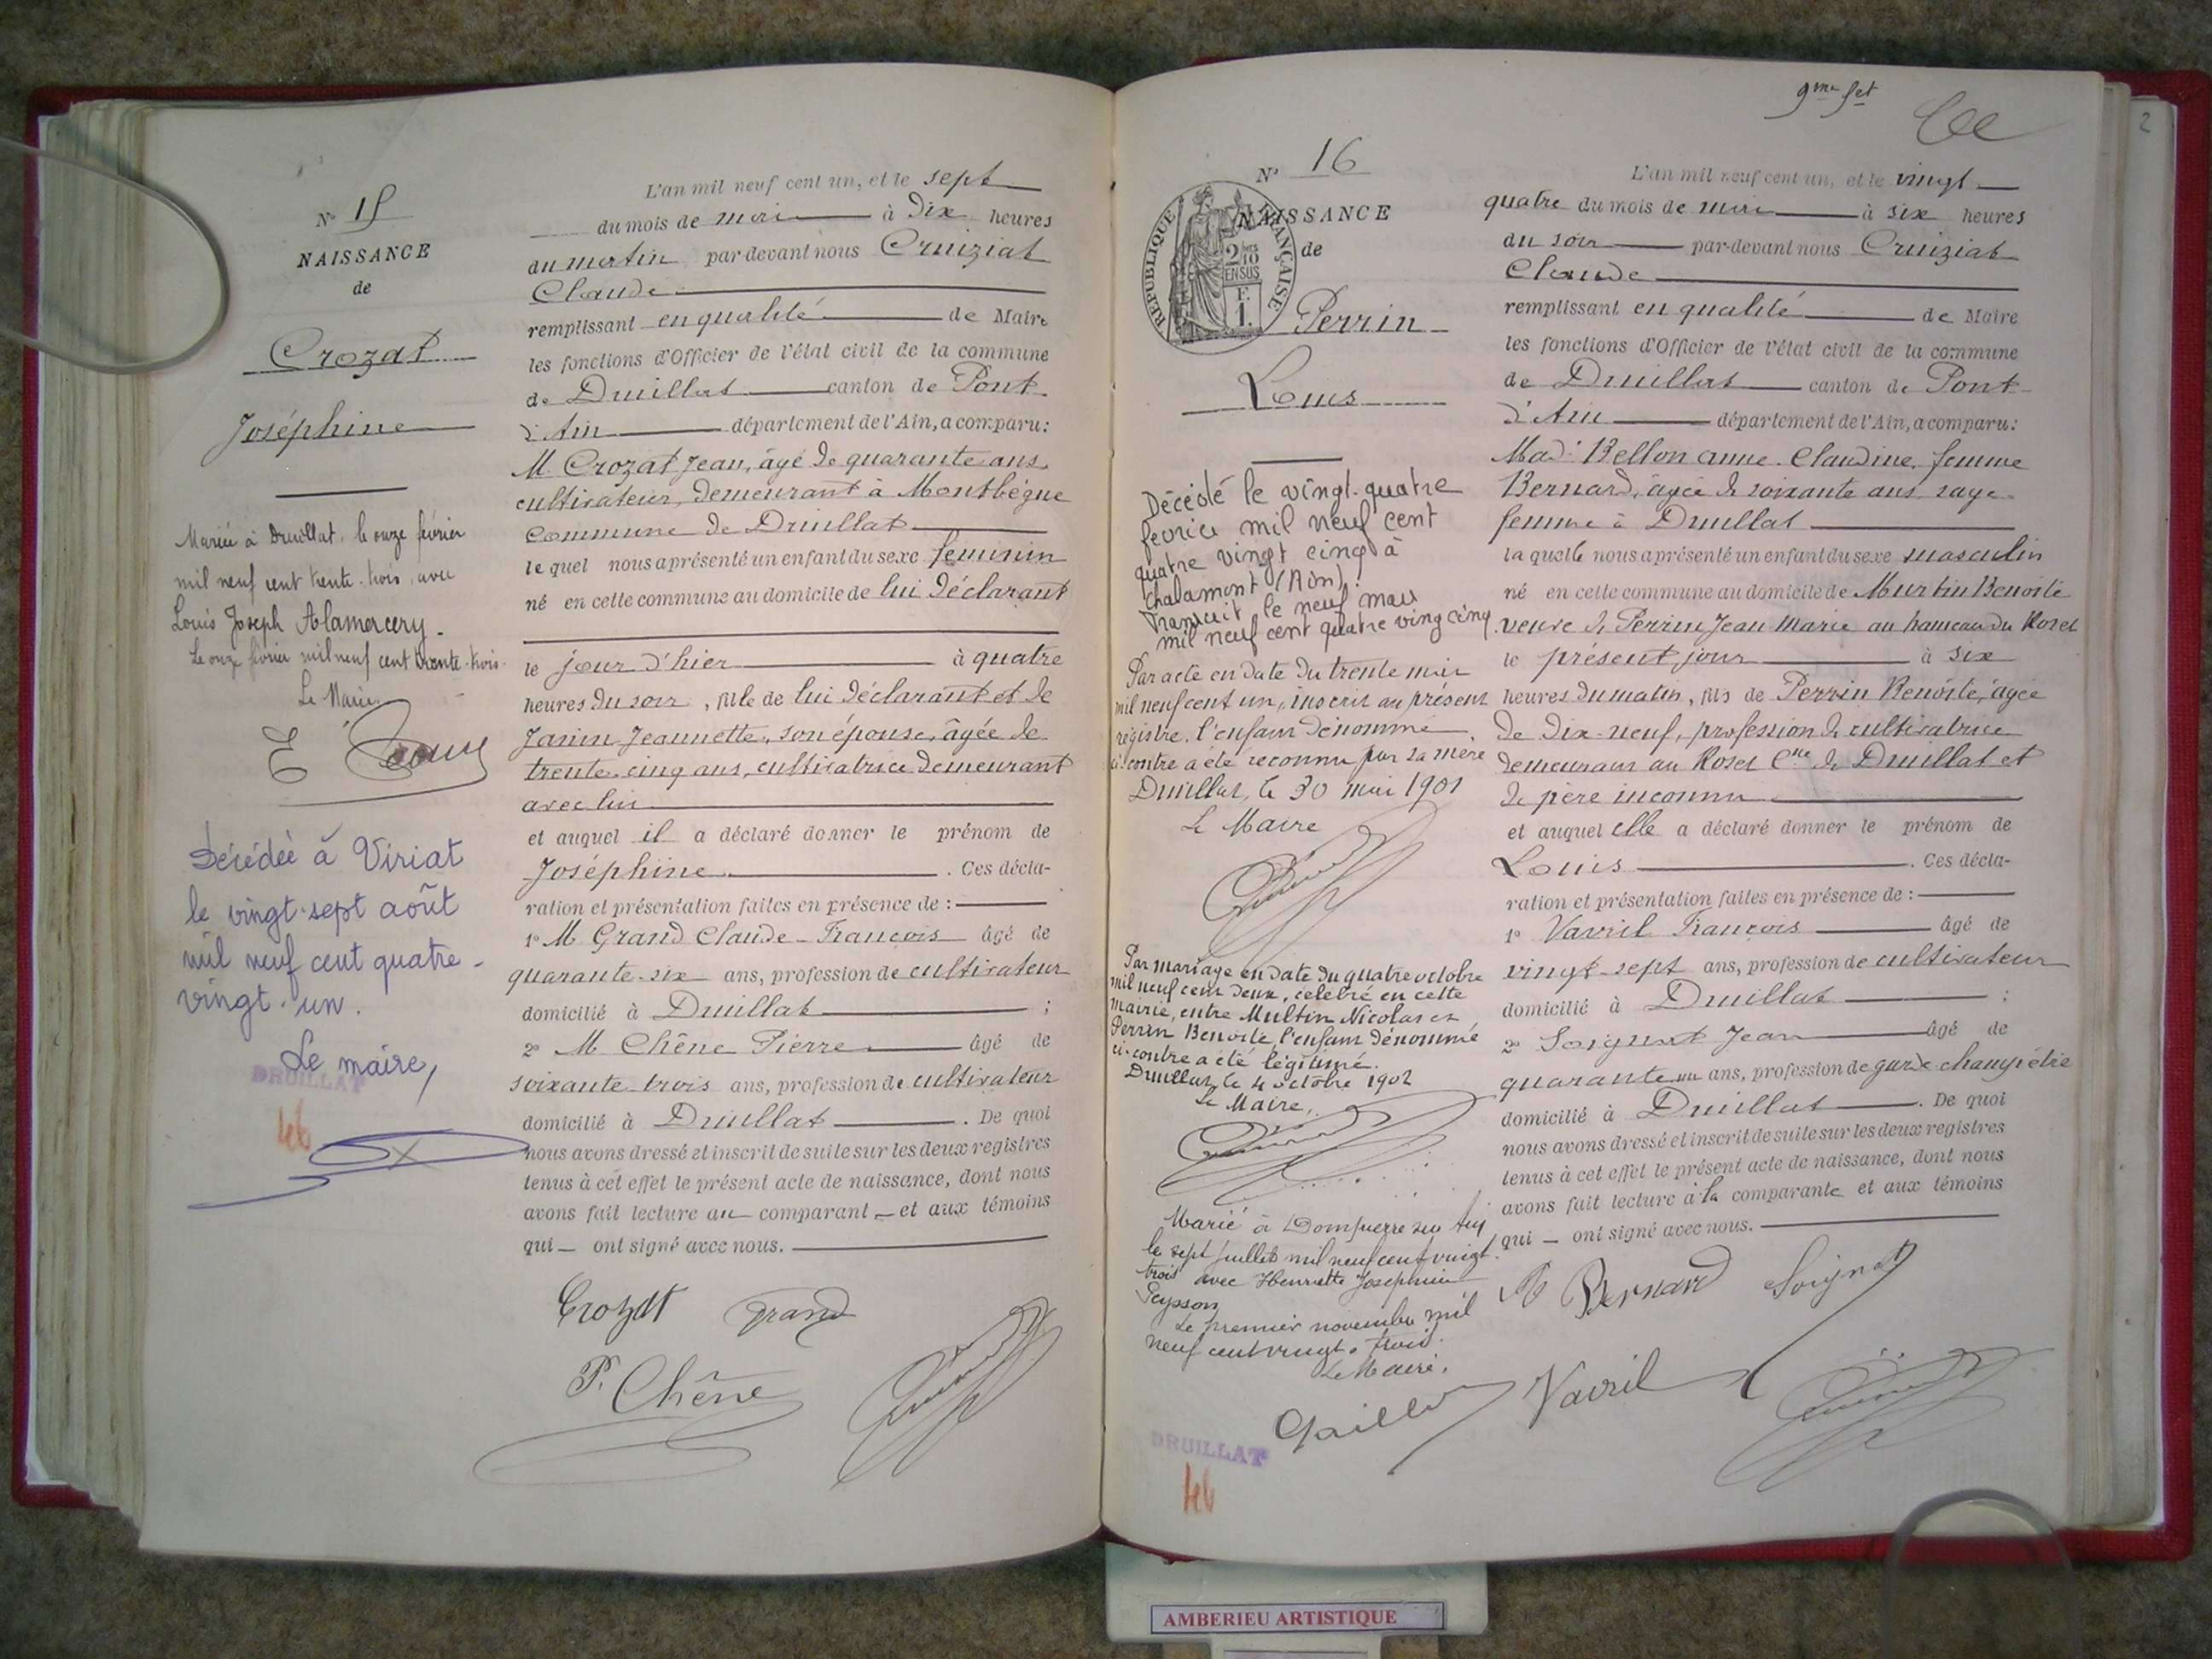 N° 15
NAISSANCE
de
Crozat
Joséphine
Mariée à Druillat, le onze février
mil neuf cent trente-trois, avec
Louis Joseph Alamercery.
Le onze février mil neuf cent trente-trois.
Le Maire,
Décédée à Viriat
le vingt-sept août
mil neuf cent quatre-
vingt-un.
Le maire,
DRUILLAT
46
L'an mil neuf cent un, et le sept
du mois de mai à Dix heures
du matin par-devant nous Cruiziat
Claude
remplissant en qualité de Maire
les fonctions d'Officier de l'état civil de la commune
de Druillat canton de Pont
d'Ain département de l'Ain, a comparu:
M. Crozat Jean, âgé de quarante ans,
cultivateur, demeurant à Montbègue
commune de Druillat
lequel nous a présenté un enfant du sexe féminin
né en cette commune au domicile de lui déclarant
le jour d'hier à quatre
heures du soir, fille de lui déclarant et de
Janin Jeannette, son épouse, âgée de
trente-cinq ans, cultivatrice demeurant
avec lui
et auquel il a déclaré donner le prénom de
Joséphine. Ces décla-
ration et présentation faites en présence de :
1° M Grand Claude-François âgé de
quarante-six ans, profession de cultivateur
domicilié à Druillat ;
2° M Chêne Pierre âgé de
soixante trois ans, profession de cultivateur
domicilié à Druillat. De quoi
nous avons dressé et inscrit de suite sur les deux registres
tenus à cet effet le présent acte de naissance, dont nous
avons fait lecture au comparant et aux témoins
qui ont signé avec nous.
Crozat Grand
P. Chêne
9me fet
2
N° 16
NAISSANCE
de
RÉPUBLIQUE FRANÇAISE
2/10 EN SUS
F. 1.
Perrin
Louis
Décédé le vingt-quatre
fevrier mil neuf cent
quatre vingt cinq à
Chalamont (Ain).
Transcrit le neuf mars
mil neuf cent quatre ving cinq
Par acte en date du trente mai
mil neuf cent un, inscrit au présent
registre, l'enfant dénommé
ci-contre a été reconnu par sa mère
Druillat, le 30 mai 1901
Le Maire
Par mariage en date du quatre octobre
mil neuf cent deux, célébré en cette
mairie, entre Multin Nicolas et
Perrin Benoite l'enfant dénommé
ci-contre a été légitimé.
Druillat, le 4 octobre 1902
Le Maire,
Marié à Dompierre sur
le sept juillet mil neuf cent vingt
trois avec Henriette Joséphine
Peysson
Le premier novembre mil
neuf cent vingt-trois.
Le Maire,
DRUILLAT
46
L'an mil neuf cent un, et le vingt
quatre du mois de mai à six heures
du soir par-devant nous Cruiziat
Claude
remplissant en qualité de Maire
les fonctions d'Officier de l'état civil de la commune
de Druillat canton de Pont
d'Ain département de l'Ain, a comparu:
Made Bellon Anne-Claudine, femme
Bernard, âgée de soixante ans sage-
femme à Druillat
laquelle nous a présenté un enfant du sexe masculin
né en cette commune au domicile de Martin Benoite
veuve de Perrin Jean-Marie au hameau du Roset
le présent jour à six
heures du matin, fils de Perrin Benoite, âgée
de dix-neuf, profession de cultivatrice
demeurant au Roset Cne de Druillat et
de père inconnu
et auquel elle a déclaré donner le prénom de
Louis. Ces décla-
ration et présentation faites en présence de :
1° Vavril François âgé de
vingt-sept ans, profession de cultivateur
domicilié à Druillat ;
2° Soignat Jean âgé de
quarante un ans, profession de garde-champêtre
domicilié à Druillat. De quoi
nous avons dressé et inscrit de suite sur les deux registres
tenus à cet effet le présent acte de naissance, dont nous
avons fait lecture à la comparante et aux témoins
qui ont signé avec nous.
Bernard Soignat
Vavril
AMBERIEU ARTISTIQUE